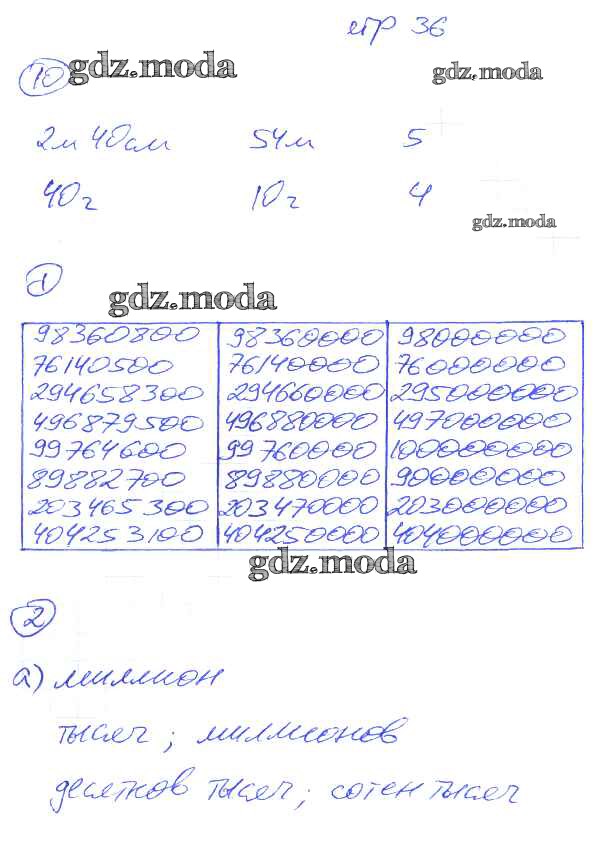 стр 36
10 gdz.moda gdz.moda
2м 40см 54м 5
40г 10г 4
gdz.moda
1
gdz.moda
98360800 98360000 98000000
76140500 76140000 76000000
294658300 294660000 295000000
496879500 496880000 497000000
99764600 99760000 100000000
89882700 89880000 90000000
203465300 203470000 203000000
404253100 404250000 404000000
gdz.moda
2
а) миллион
тысяч; миллионов
десятков тысяч; сотен тысяч